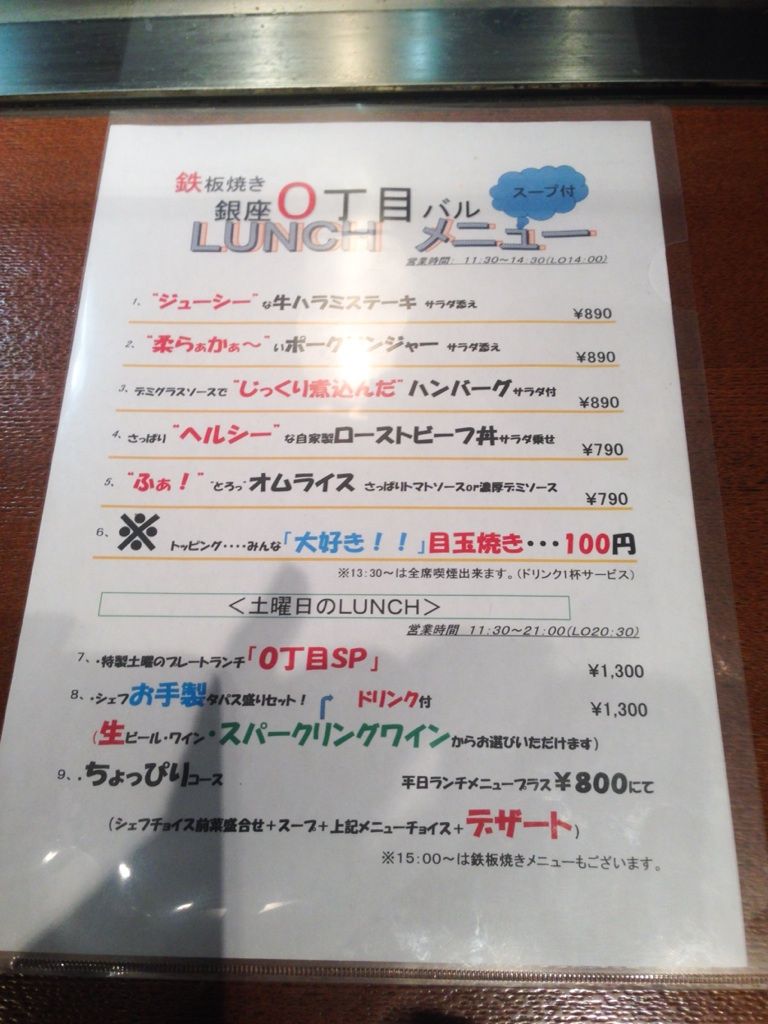 鉄板焼き
銀座0丁目バル
スープ付
LUNCH メニュー
営業時間: 11:30～14:30(LO14:00)
1. "ジューシー"な牛ハラミステーキ サラダ添え ¥890
2. "柔らぁかぁ～"いポークジンジャー サラダ添え ¥890
3. デミグラスソースで"じっくり煮込んだ"ハンバーグサラダ付 ¥890
4. さっぱり"ヘルシー"な自家製ローストビーフ丼サラダ乗せ ¥790
5. "ふぁ！"とろっ"オムライス さっぱりトマトソースor濃厚デミソース ¥790
6、※ トッピング・・・・みんな「大好き！！」目玉焼き・・・100円
※13:30～は全席喫煙出来ます。(ドリンク1杯サービス)
＜土曜日のLUNCH＞
営業時間 11:30～21:00(LO20:30)
7、・特製土曜のプレートランチ「0丁目SP」 ¥1,300
8、・シェフお手製タパス盛りセット！ ドリンク付 ¥1,300
(生ビール・ワイン・スパークリングワインからお選びいただけます)
9、・ちょっぴりコース 平日ランチメニュープラス¥800にて
(シェフチョイス前菜盛合せ＋スープ＋上記メニューチョイス＋デザート)
※15:00～は鉄板焼きメニューもございます。